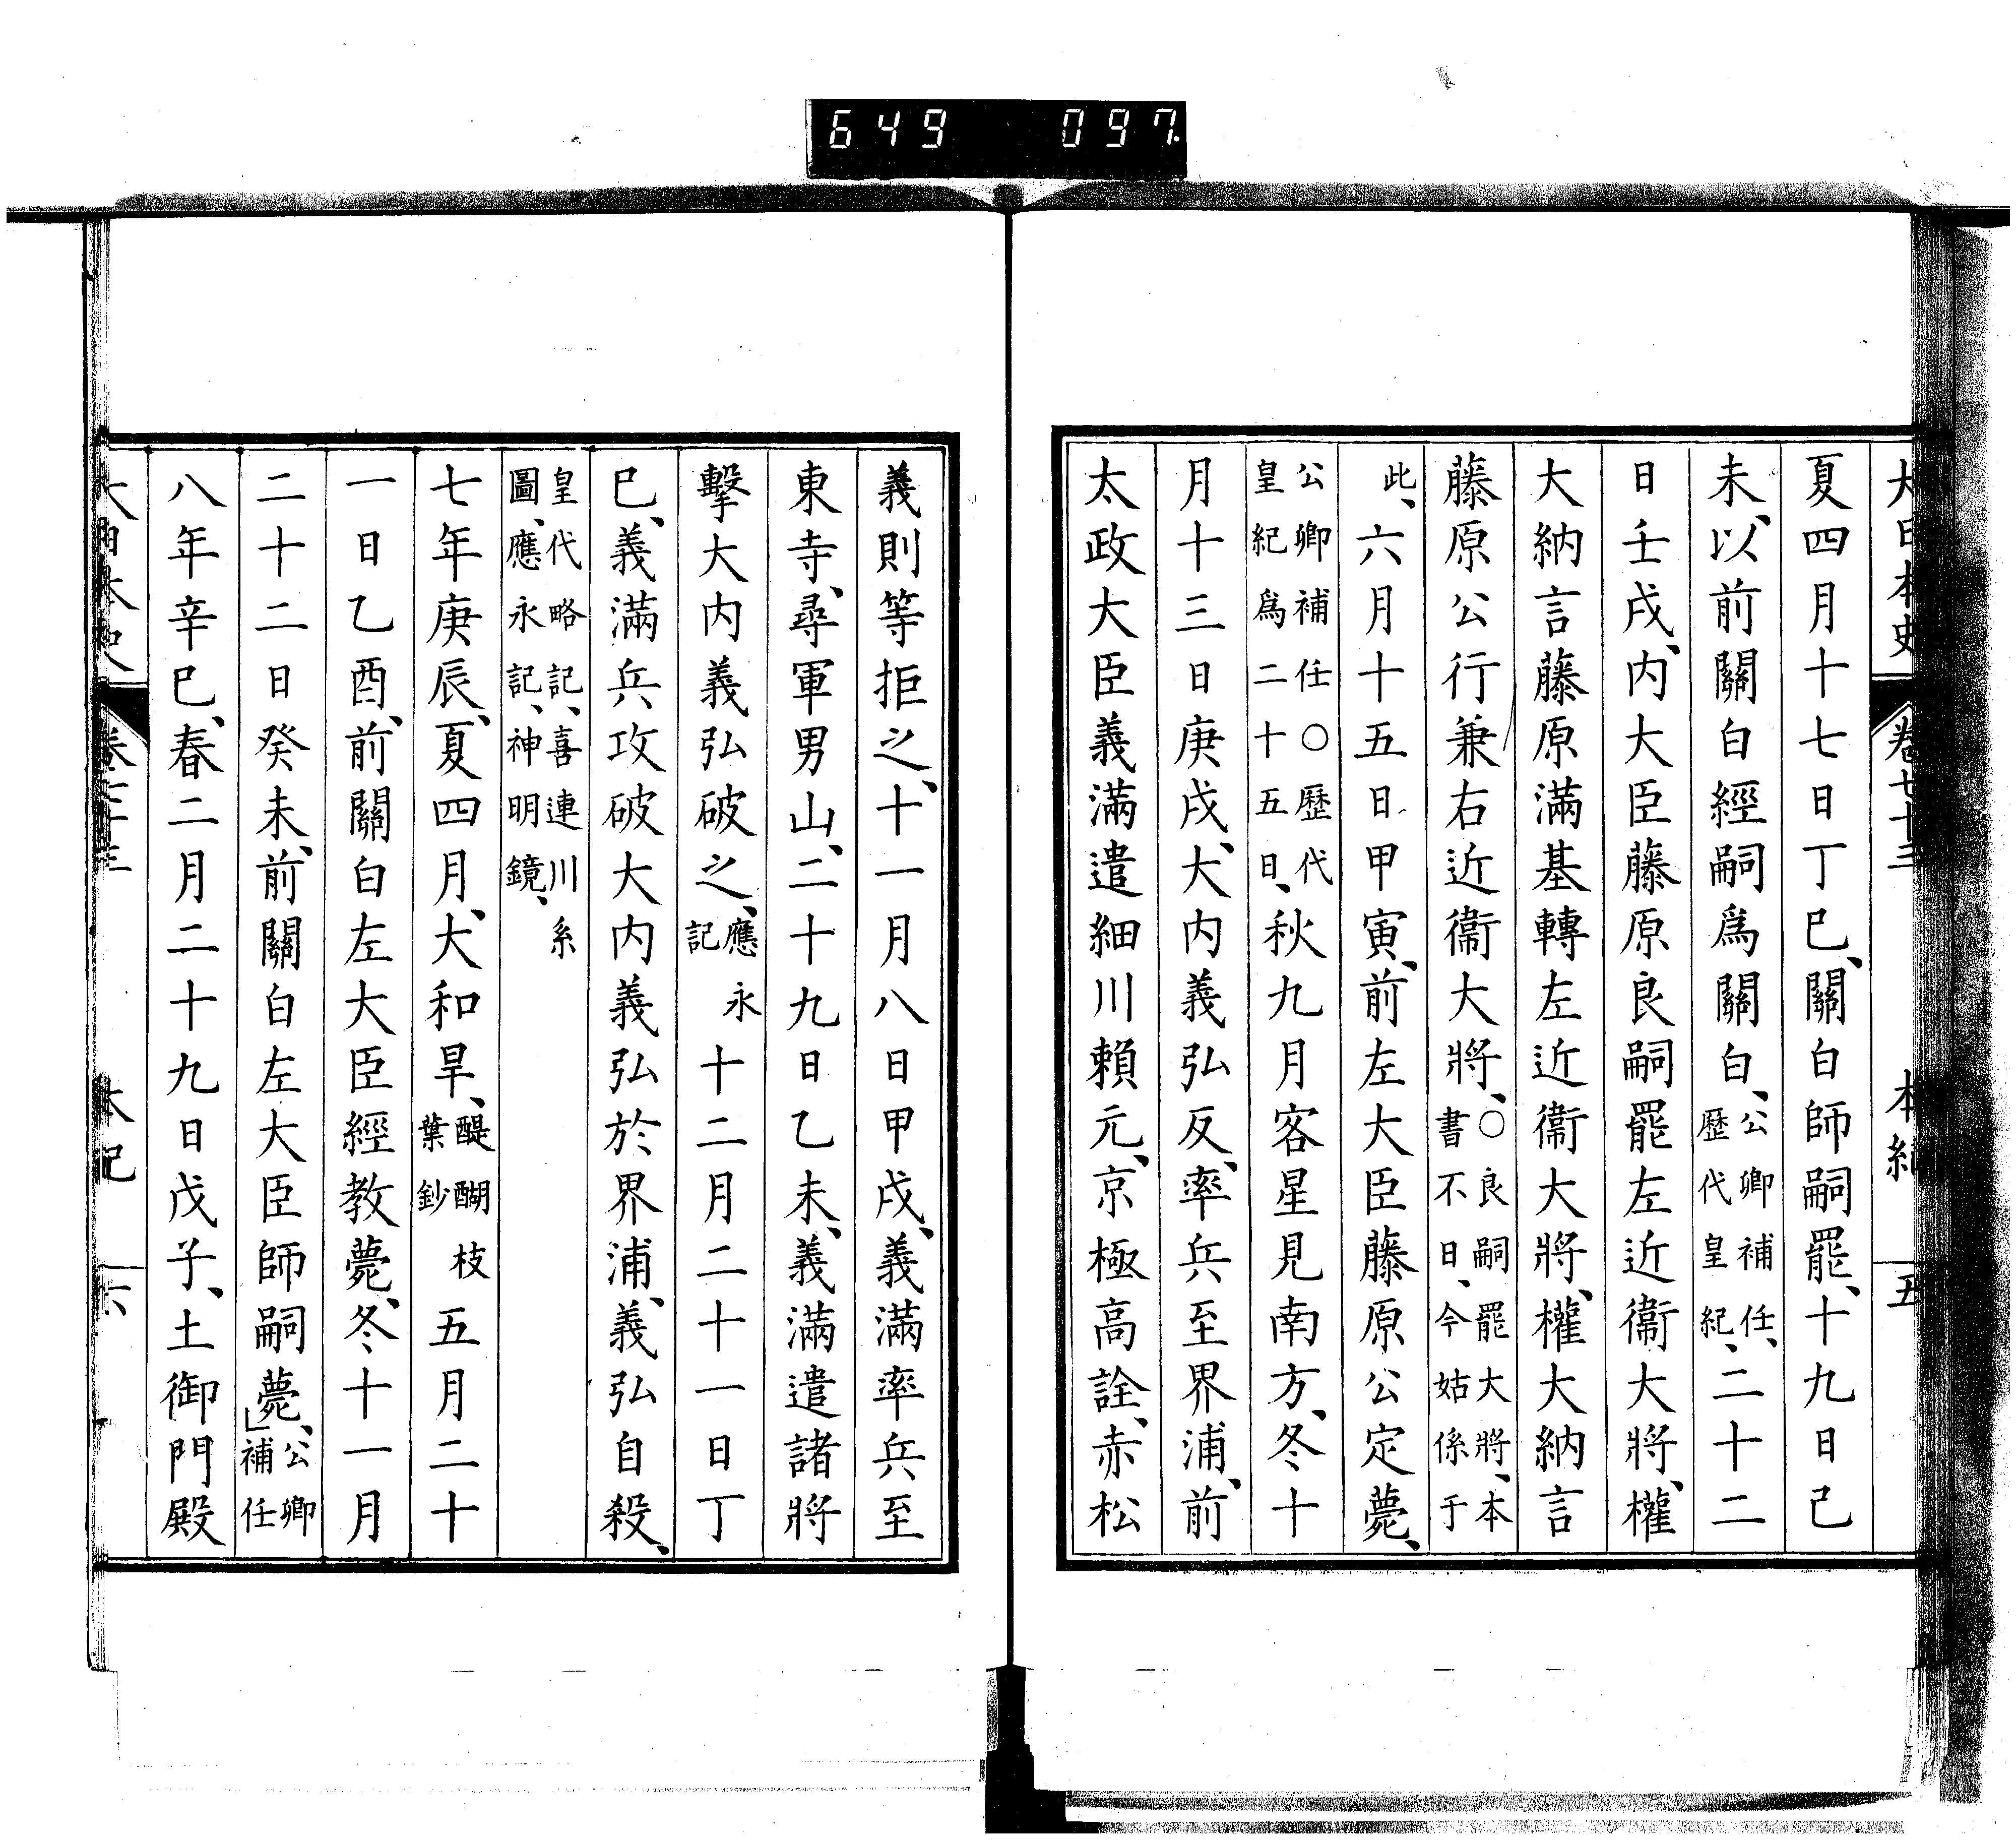 649 097.
大日本史 卷七十三 本紀 五
夏四月十七日丁巳、關白師嗣罷、十九日己
未、以前關白經嗣爲關白、公卿補任、歷代皇紀、二十二
日壬戌、内大臣藤原良嗣罷左近衞大將、權
大納言藤原滿基轉左近衞大將、權大納言
藤原公行兼右近衞大將、○良嗣罷大將、本書不日、今姑係于
此、六月十五日甲寅、前左大臣藤原公定薨、
公卿補任○歷代皇紀爲二十五日、秋九月客星見南方、冬十
月十三日庚戌、大内義弘反、率兵至界浦、前
太政大臣義滿遣細川賴元、京極高詮、赤松
義則等拒之、十一月八日甲戌、義滿率兵至
東寺、尋軍男山、二十九日乙未、義滿遣諸將
擊大内義弘破之、應永記十二月二十一日丁
巳、義滿兵攻破大内義弘於界浦、義弘自殺、
皇代略記、喜連川系圖、應永記、神明鏡、
七年庚辰、夏四月、大和旱、醍醐枝葉鈔五月二十
一日乙酉、前關白左大臣經教薨、冬十一月
二十二日癸未、前關白左大臣師嗣薨、」公卿補任
八年辛巳、春二月二十九日戊子、土御門殿
大日本史 卷七十三 本紀 六